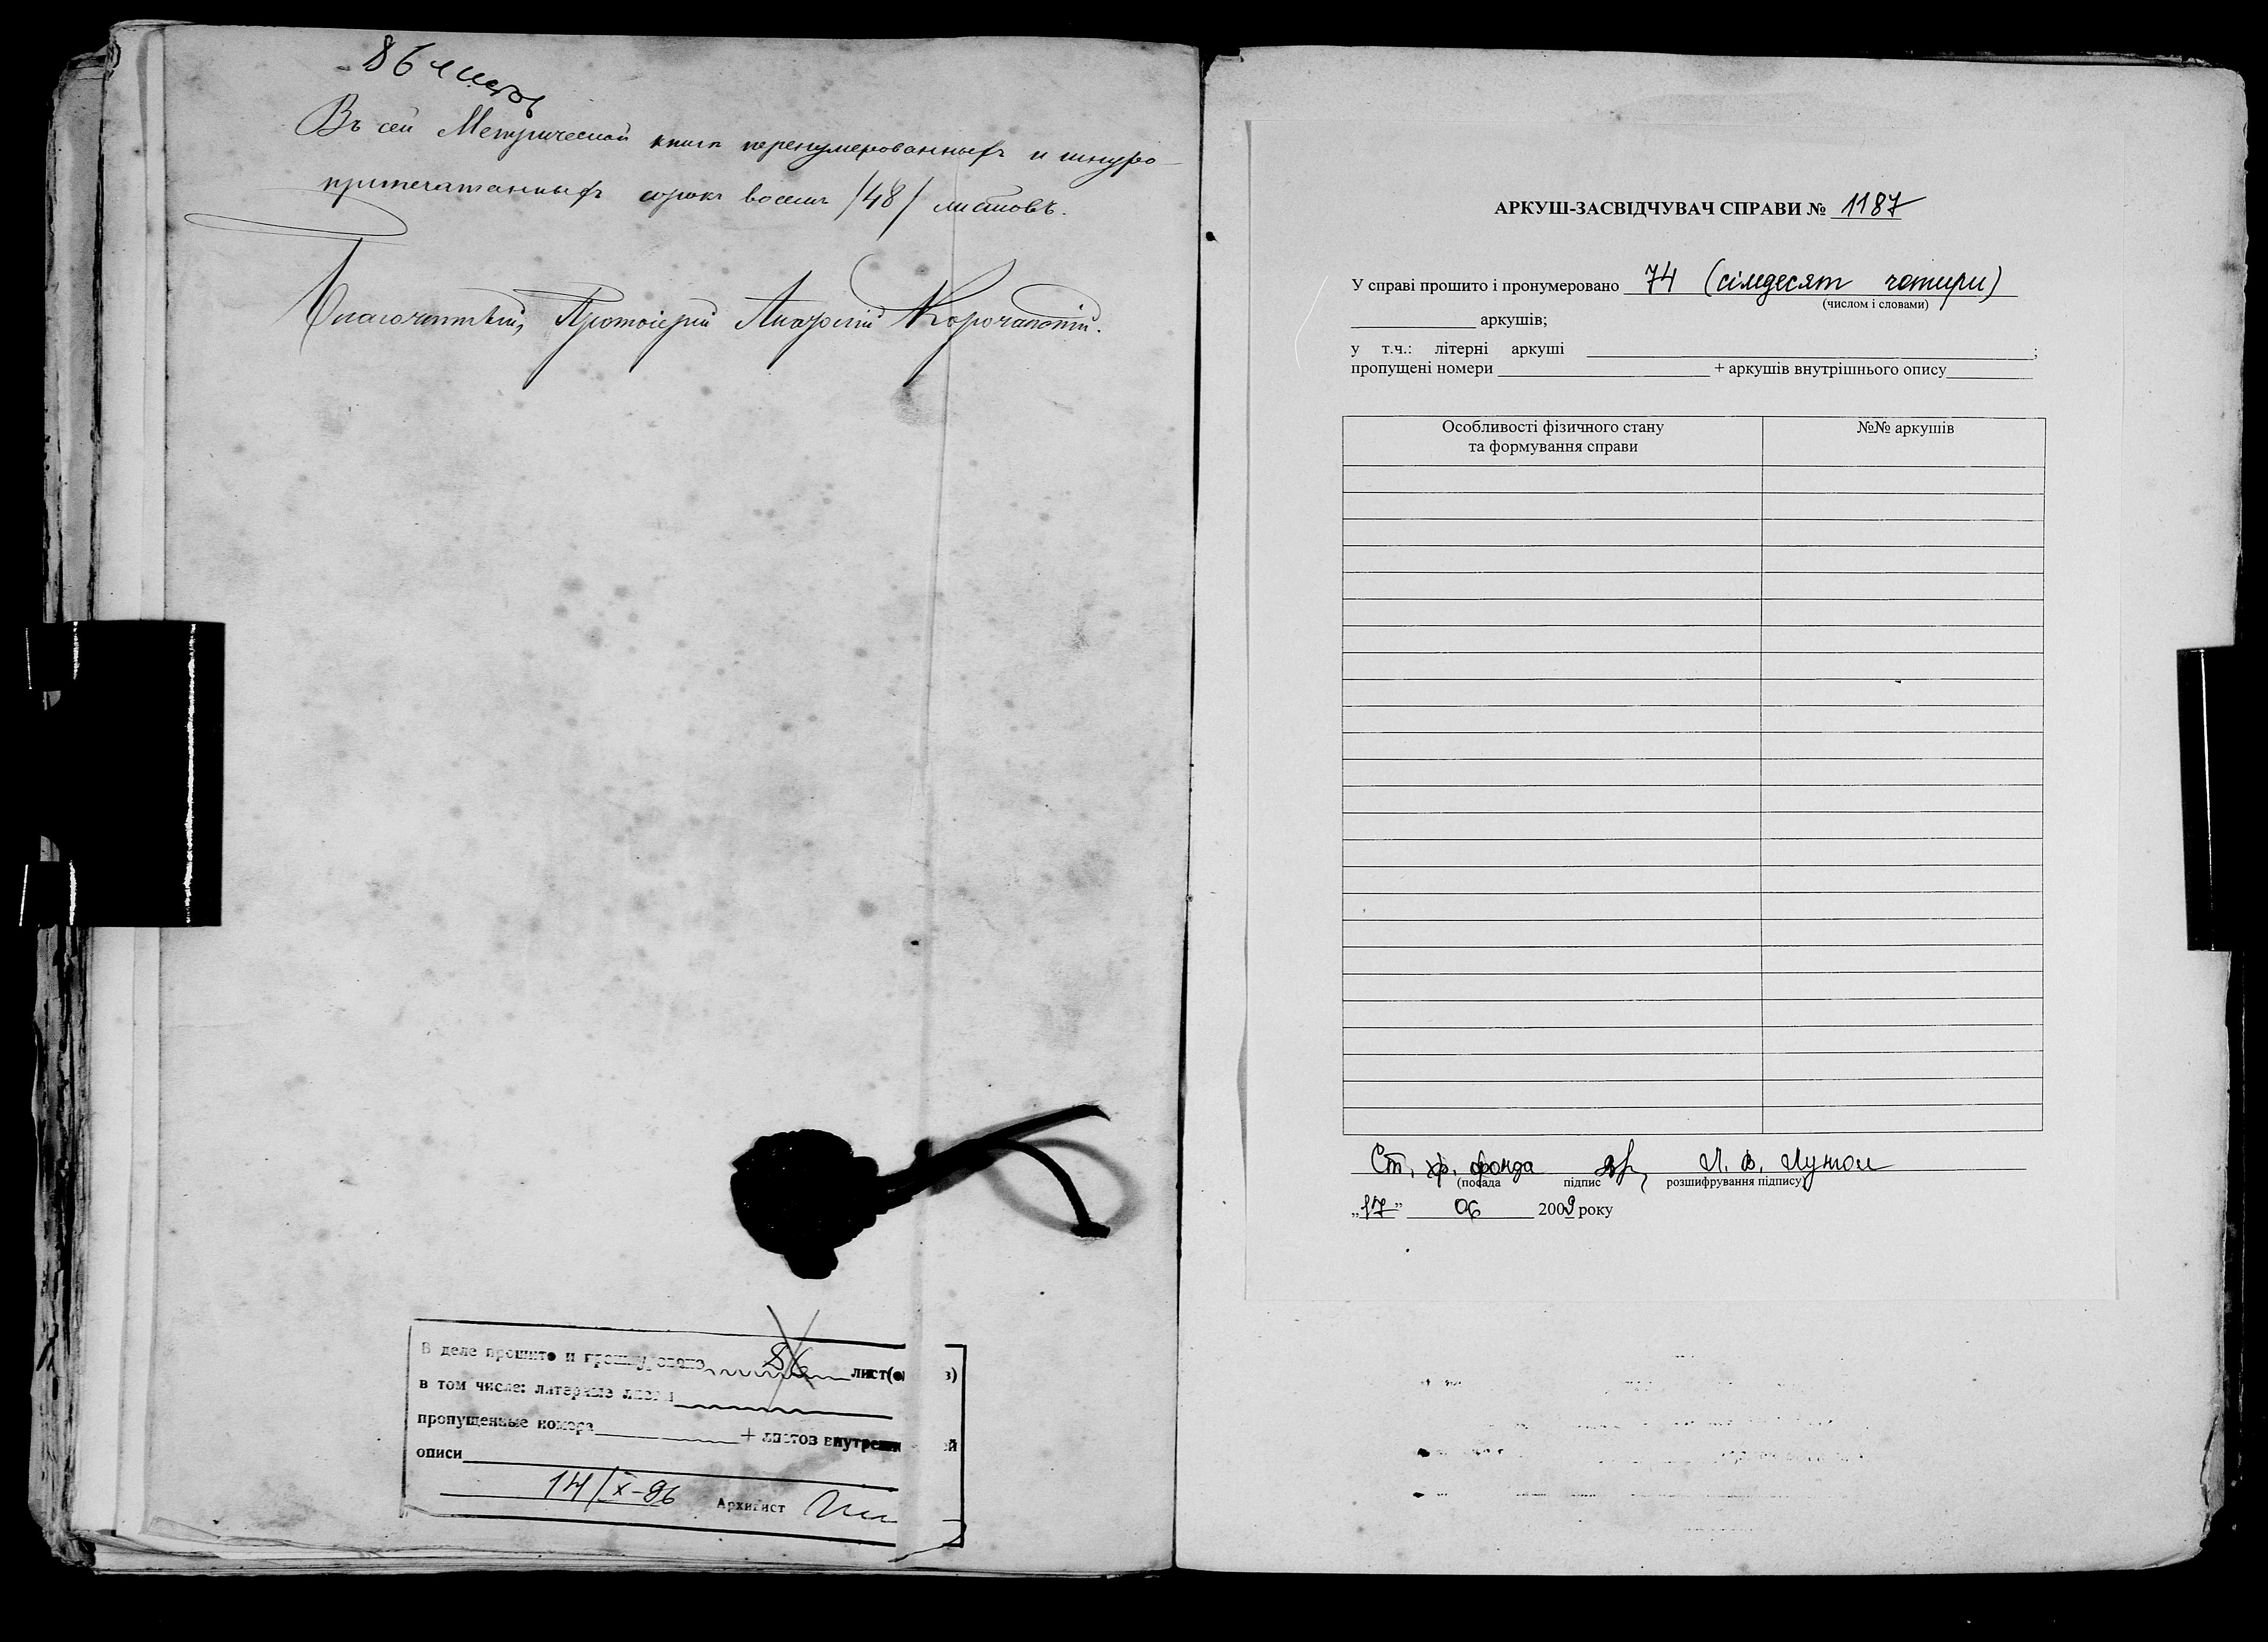 86 листов
Въ сей Метрической книгѣ перенумерованныхъ и шнуро
припечатанныхъ сорокъ восемь /48/ листовъ.
Благочинный, Протоіерей
В деле прошито и пронумеровано 86 лист(ов)
в том числе: литерные листы
пропущенные номера + листов внутренней
описи
14/X-86 Архивист
АРКУШ-ЗАСВІДЧУВАЧ СПРАВИ № 1187
У справі прошито і пронумеровано 74 (сімдесят чотири)
(числом і словами)
аркушів;
у т.ч.: літерні аркуші ;
пропущені номери + аркушів внутрішнього опису
Особливості фізичного стану
та формування справи
№№ аркушів
Ст. хр. фонда
(посада підпис розшифрування підпису)
„17” 06 2009 року